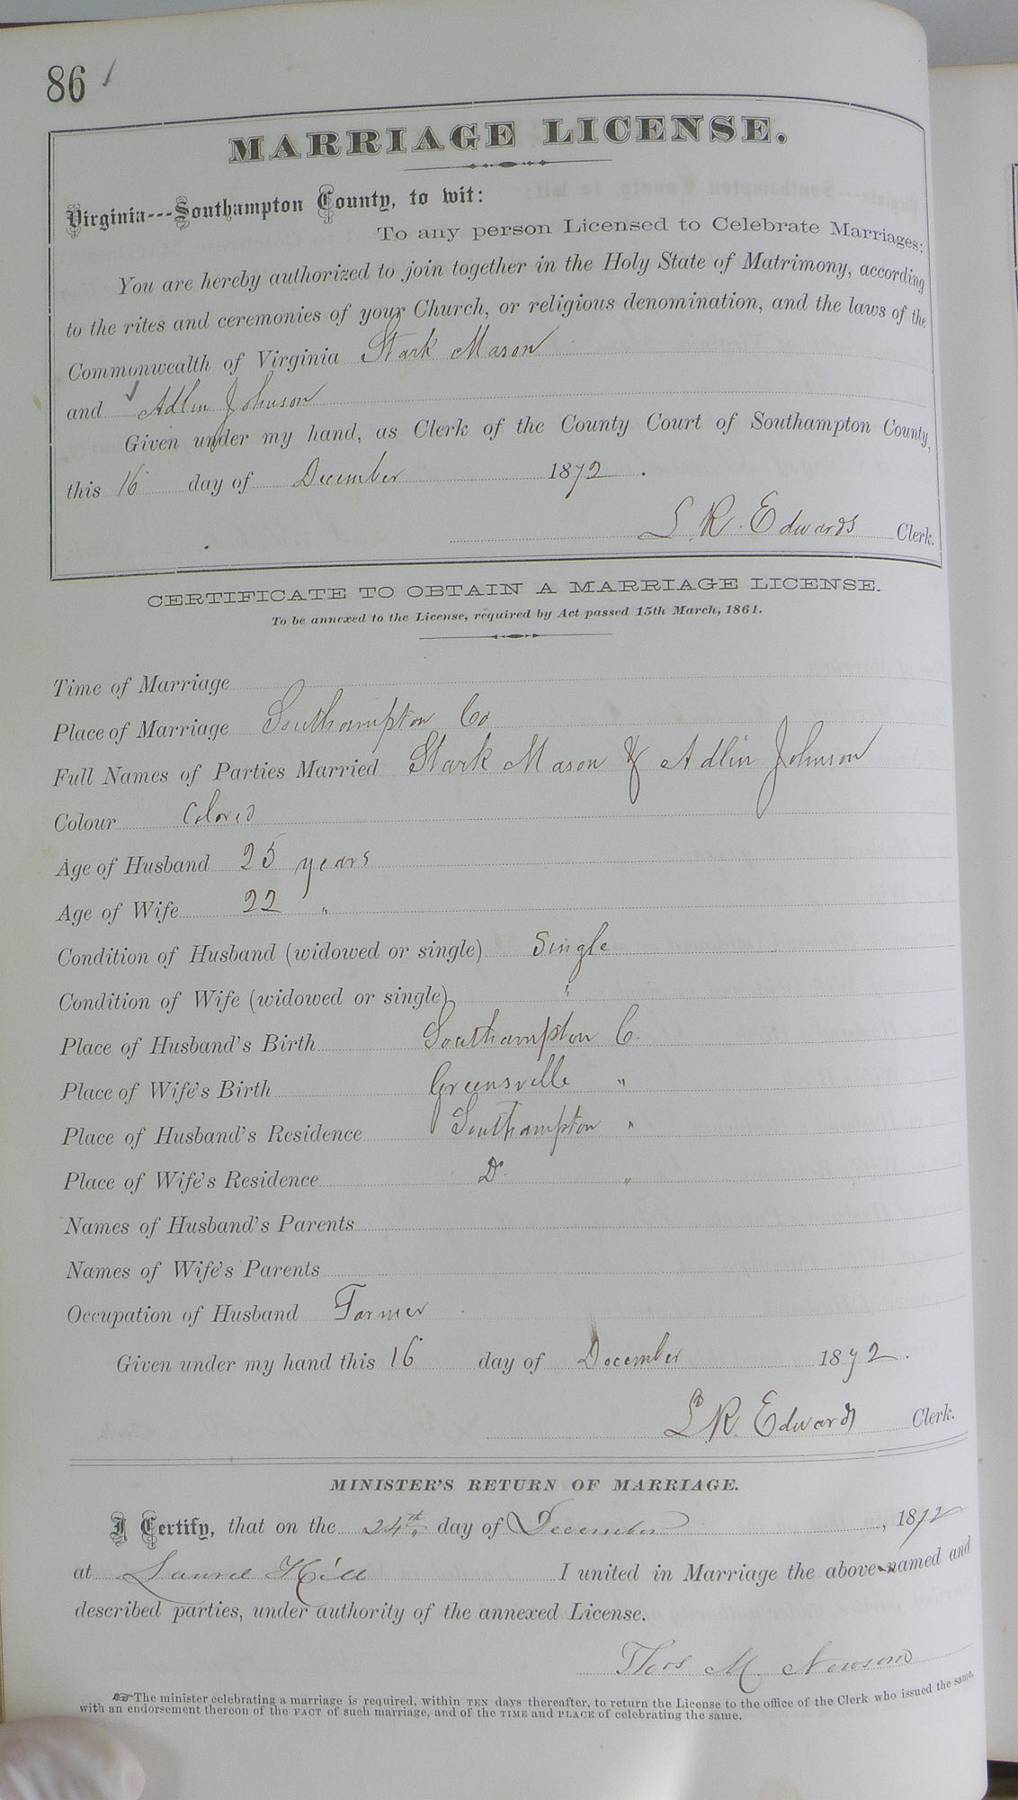 86
MARRIAGE LICENSE.
Virginia---Southampton County, to wit:
To any person Licensed to Celebrate Marriages:
You are hereby authorized to join together in the Holy State of Matrimony, according
to the rites and ceremonies of your Church, or religious denomination, and the laws of the
Commonwealth of Virginia Stark Mason
and Adlin Johnson
Given under my hand, as Clerk of the County Court of Southampton County,
this 16 day of December 1872.
L. R. Edwards Clerk.
CERTIFICATE TO OBTAIN A MARRIAGE LICENSE.
To be annexed to the License, required by Act passed 15th March, 1861.
Time of Marriage
Place of Marriage Southampton Co
Full Names of Parties Married Stark Mason & Adlin Johnson
Colour Colored
Age of Husband 25 years
Age of Wife 22 "
Condition of Husband (widowed or single) Single
Condition of Wife (widowed or single) "
Place of Husband's Birth Southampton C.
Place of Wife's Birth Greensville "
Place of Husband's Residence Southampton "
Place of Wife's Residence Do "
Names of Husband's Parents
Names of Wife's Parents
Occupation of Husband Farmer
Given under my hand this 16 day of December 1872.
L. R. Edwards Clerk.
MINISTER'S RETURN OF MARRIAGE.
I Certify, that on the 24th. day of December, 1872
at Laurel Hill I united in Marriage the above-named and
described parties, under authority of the annexed License.
Thos M. Newsom
☞The minister celebrating a marriage is required, within TEN days thereafter, to return the License to the office of the Clerk who issued the same,
with an endorsement thereon of the FACT of such marriage, and of the TIME and PLACE of celebrating the same.